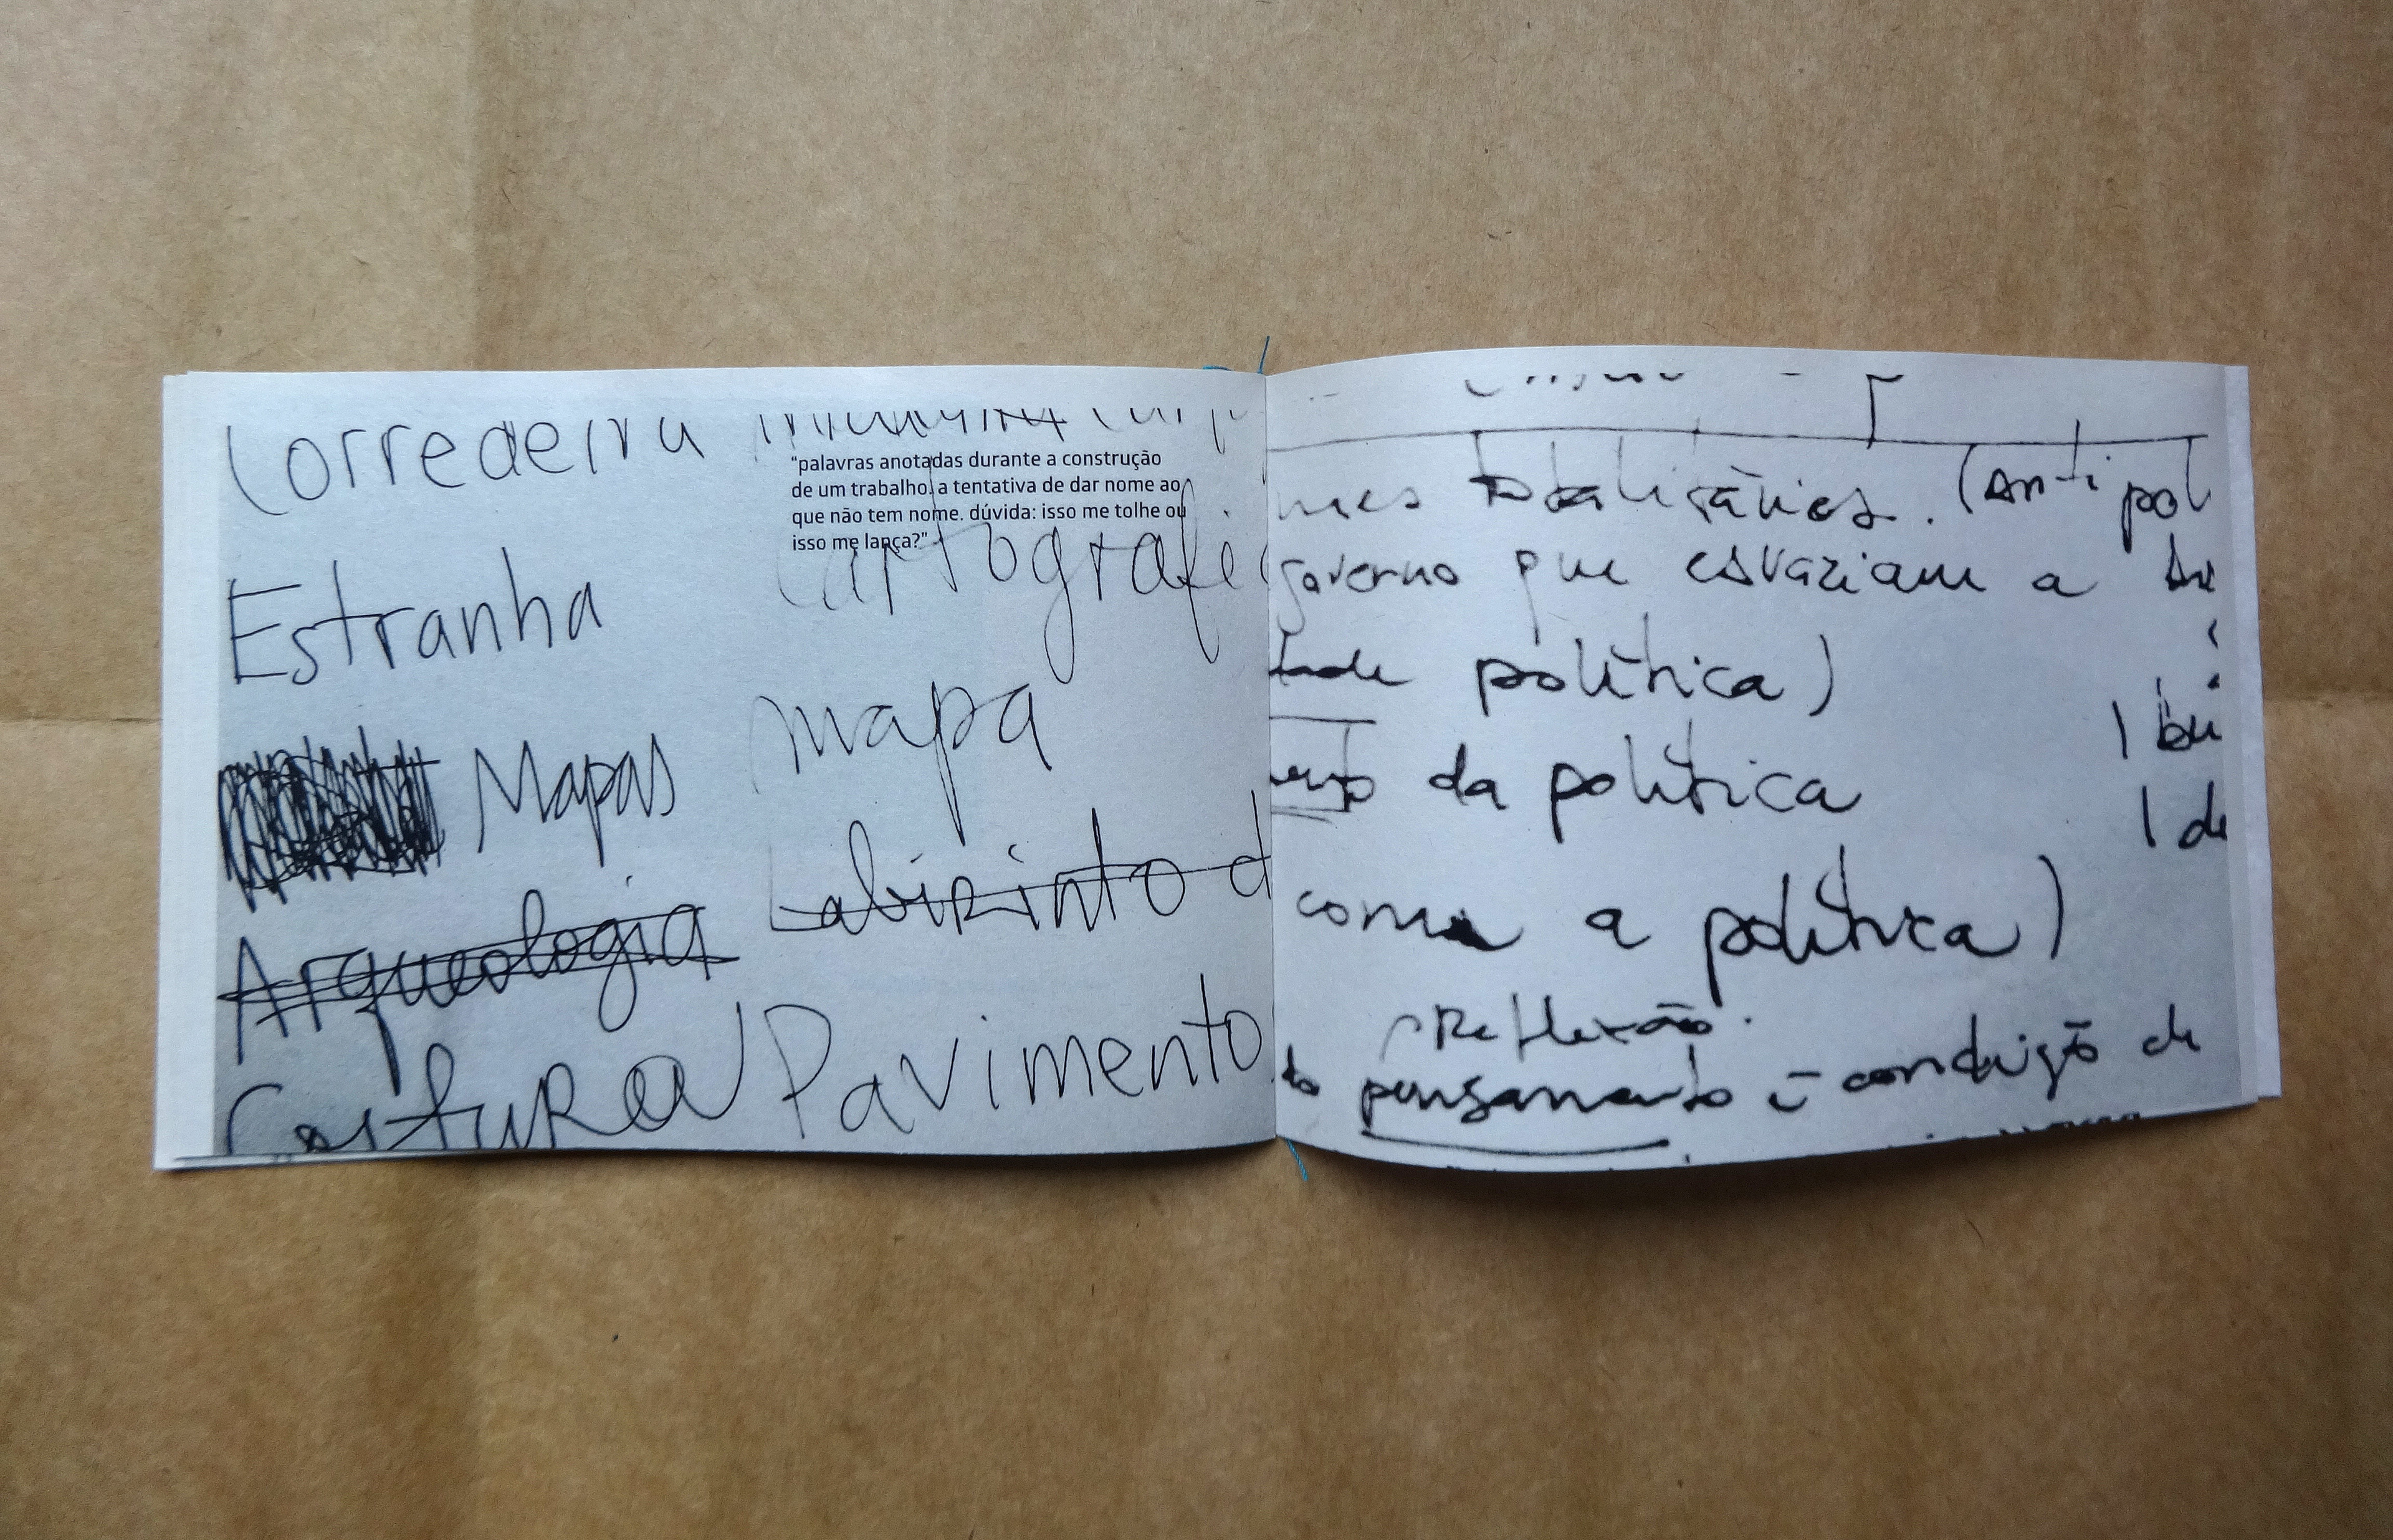 Corredeira
Estranha
Mapas
Arqueologia
Costura
"palavras anotadas durante a construção
de um trabalho. a tentativa de dar nome ao
que não tem nome. dúvida: isso me tolhe ou
isso me lança?"
Cartografi
mapa
Labirinto d
Pavimento
totalitários. (anti pol
governo que esvaziam a
política)
da política
com a política)
Reflexão.
pensamento é condição de